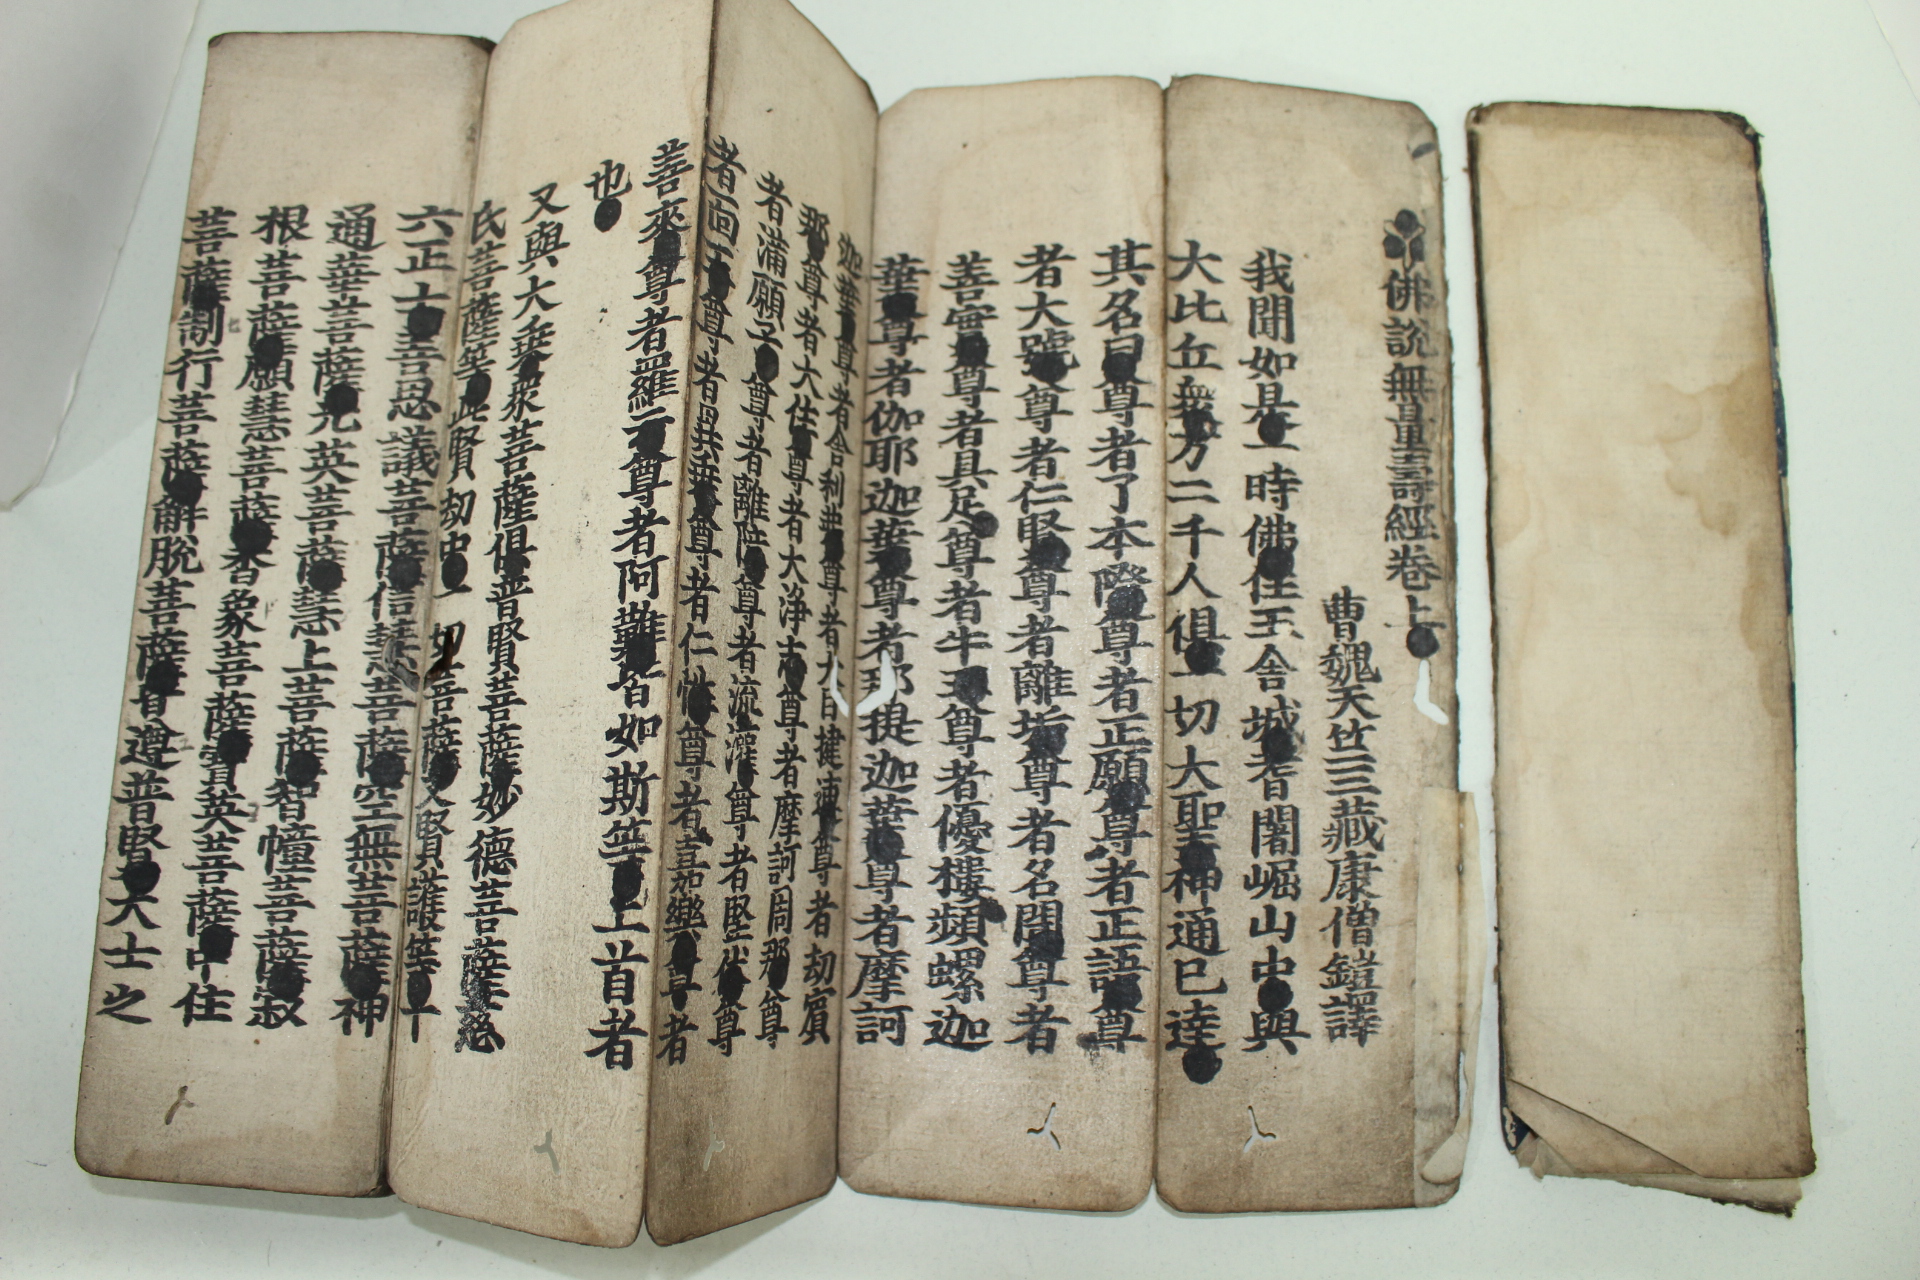 佛說無量壽經卷上
曹魏天竺三藏康僧鎧譯
我聞如是一時佛住王舍城耆闍崛山中與
大比丘衆万二千人俱一切大聖神通已達
其名曰尊者了本際尊者正願尊者正語尊
者大號尊者仁賢尊者離垢尊者名聞尊者
善實尊者具足尊者牛王尊者優樓頻螺迦
葉尊者伽耶迦葉尊者那提迦葉尊者摩訶
迦葉尊者舍利弗尊者大目揵連尊者劫賓
那尊者大住尊者大淨志尊者摩訶周那尊
者滿願子尊者離障尊者流灌尊者堅伏尊
者面王尊者異乘尊者仁性尊者喜樂尊者
善來尊者羅云尊者阿難皆如斯等上首者
也
又與大乘衆菩薩俱普賢菩薩妙德菩薩慈
氏菩薩等此賢劫中一切菩薩又賢護等十
六正士善思議菩薩信慧菩薩空無菩薩神
通華菩薩光英菩薩慧上菩薩智幢菩薩寂
根菩薩願慧菩薩香象菩薩寶英菩薩中住
菩薩制行菩薩解脫菩薩皆遵普賢大士之